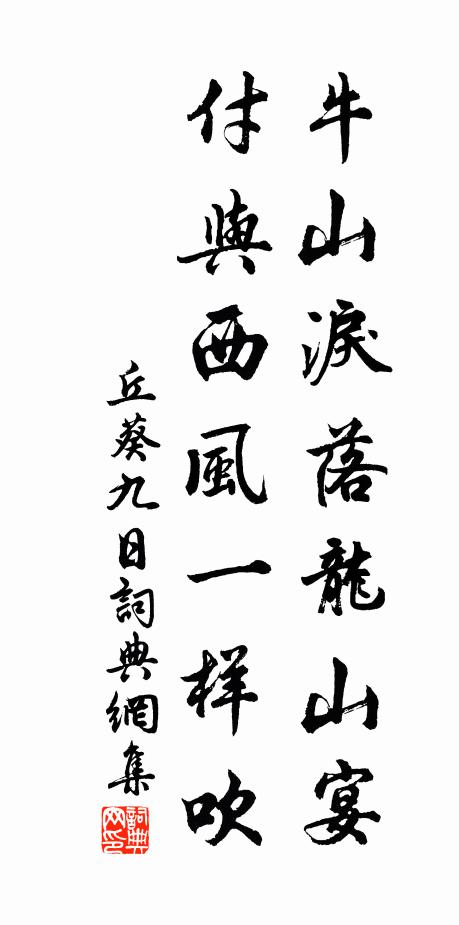 牛山淚落龍山宴
付與西風一样吹
丘葵九日詞典網集
詞典網印